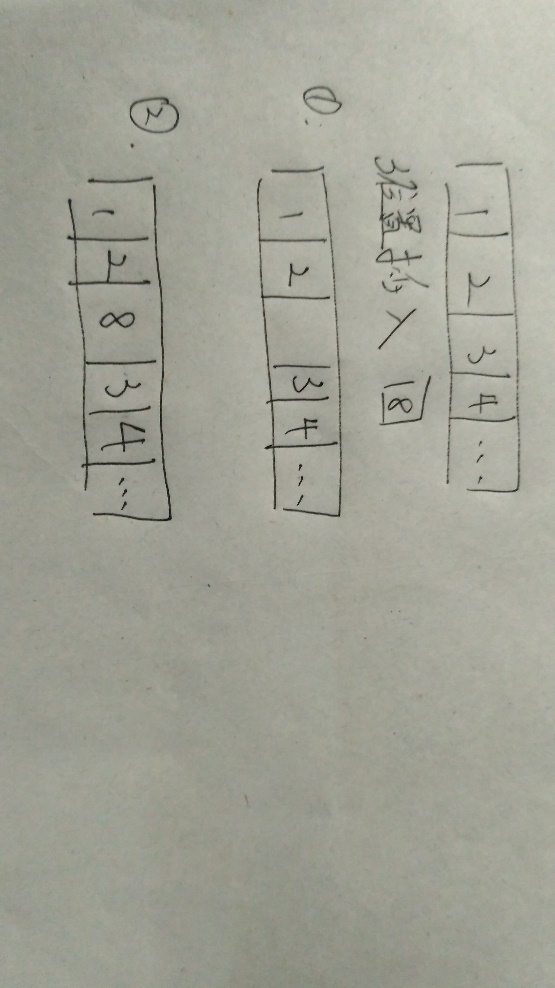 1 2 3 4 ...
3位置插入 8
①.
1 2 3 4 ...
②.
1 2 8 3 4 ...